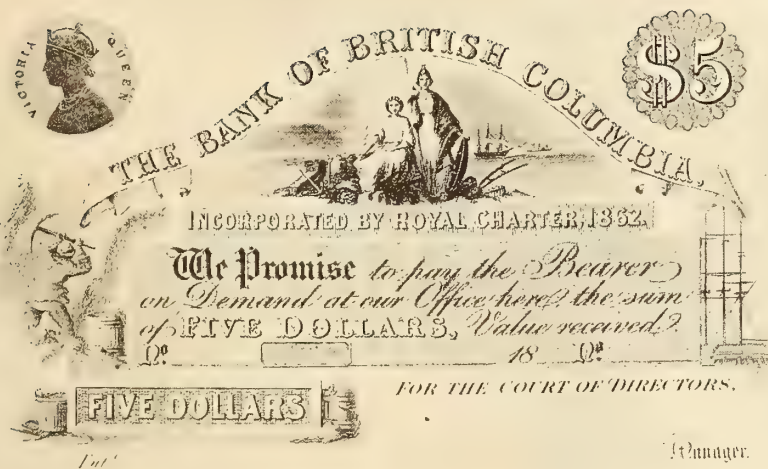 VICTORIA QUEEN
$5
THE BANK OF BRITISH COLUMBIA,
INCORPORATED BY ROYAL CHARTER, 1862.
We Promise to pay the Bearer
on Demand at our Office here, the sum
of FIVE DOLLARS, Value received.
No 18 No
FOR THE COURT OF DIRECTORS,
FIVE DOLLARS
Manager.
Entd